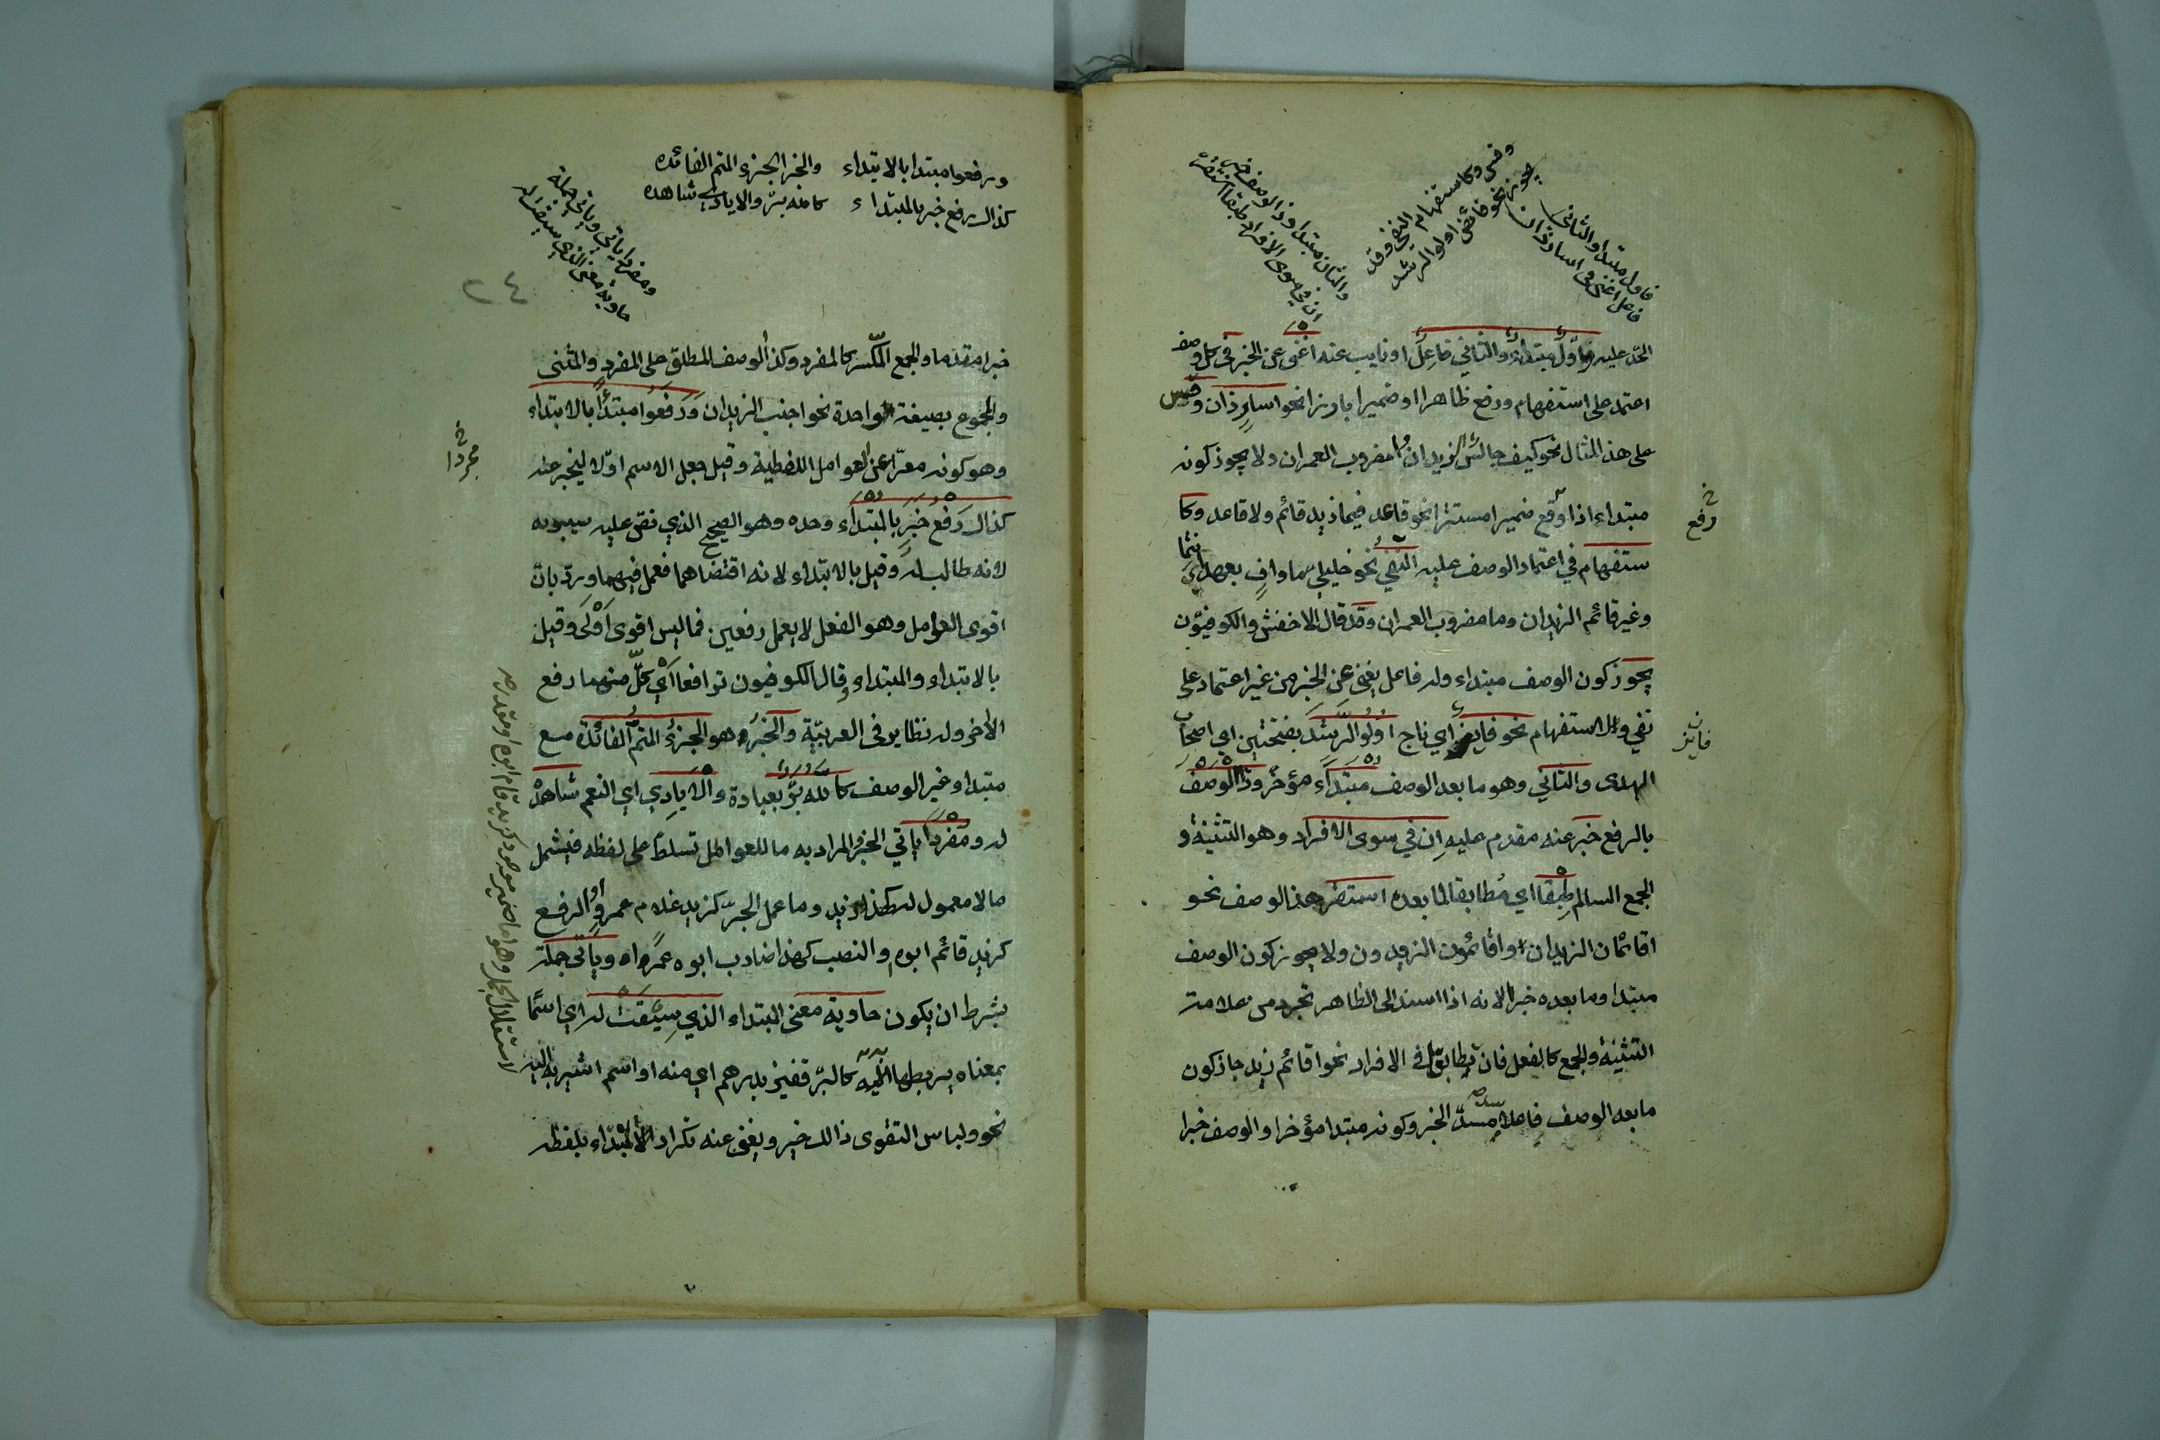 فاول مبتدا والثاني
فاعل اغنى في اسار ذان
وقس وكاستفهام النفي وقد
يجوز نحو فائز اولوا الرشد
والثان مبتدا وذا الوصف خبر
ان في سوى الافراد طبقا استقر
الحد عليه فاول مبتداء والثاني فاعل او نايب عنه اغنى عن الخبر في كل وصف
اعتمد على استفهام ورفع ظاهرا او ضميرا بارزا نحو اسار ذان وقس
على هذا المثال نحو كيف جالس الزيدان و امضروب العمران ولا يجوز كونه
مبتداء اذا وقع ضميرا مستترا نحو قاعد فيما زيد قائم ولا قاعد وكا
رفع
ستفهام في اعتماد الوصف عليه النفي نحو خليلي ما واف بعهدي انتما
وغير قائم الزيدان وما مضروب العمران وقد قال الاخفش والكوفيون
يجوز كون الوصف مبتداء وله فاعل يغني عن الخبر من غير اعتماد على
نفي ولا استفهام نحو فايز اي ناج اولوا الرشد بفتحتين اي اصحاب
فايز
الهدى والثاني وهو ما بعد الوصف مبتداء مؤخر وذا الوصف
بالرفع خبر عنه مقدم عليه ان في سوى الافراد وهو التثنية و
الجمع السالم طبقا اي مطابقا لما بعده استقر هذا الوصف نحو
اقائمان الزيدان او اقائمون الزيدون ولا يجوز كون الوصف
مبتدا وما بعده خبرا لانه اذا اسند الى الظاهر تجرد من علامة
التثنية والجمع كالفعل فان تطابق في الافراد نحو اقائم زيد جاز كون
ما بعد الوصف فاعلا مسد الخبر وكونه مبتدا مؤخرا والوصف خبرا
ورفعوا مبتدا بالابتداء والخبر الجزء المتم الفائده
كذاك رفع خبر بالمبتداء كالله بر والايادي شاهده
ومفردا ياتي وياتي جملة
حاوية معنى الذي سيقت له
٢٤
خبرا مقدما والجمع المكسر كالمفرد وكذا الوصف المطلق على المفرد والمثنى
والمجموع بصيغة واحدة نحو اجنب الزيدان ورفعوا مبتدأ بالابتداء
وهو كونه معرا عن العوامل اللفظية وقيل جعل الاسم اولا ليخبر عنه
مجردا
كذاك رفع خبر بالمبتداء وحده وهو الصحيح الذي نص عليه سيبويه
لانه طالب له وقيل بالابتداء لانه اقتضاهما فعمل فيهما ورد بان
اقوى العوامل وهو الفعل لا يعمل رفعين فما ليس اقوى اولى وقيل
بالابتداء والمبتداء وقال الكوفيون ترافعا اي كل منهما رفع
الآخر وله نظاير في العربية والخبر هو الجزء المتم الفائدة مع
مبتداء غير الوصف كالله بر بعباده والايادي اي النعم شاهدة
له ومفردا ياتي الخبر والمراد به ما للعوامل تسلط على لفظه فيشمل
ما لا معمول له كهذا زيد وما عمل الجر كزيد غلام عمرو او الرفع
كزيد قائم ابوه والنصب كهذا ضارب ابوه عمرا وياتي جملة
بشرط ان يكون حاوية معنى المبتداء الذي سيقت له اي اسما
بمعناه يربطها اليه كالبر قفيز بدرهم اي منه او اسم اشير به اليه
نحو ولباس التقوى ذالك خير ويغني عنه تكرار المبتداء بلفظه
لاستقلال الجمل وهو اما ضمير موجود كزيد قام ابوه او مقدر صح